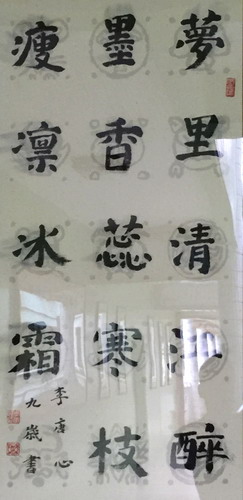 夢里清江醉
墨香蕊寒枝
瘦凜冰霜
李唐心
九歲書